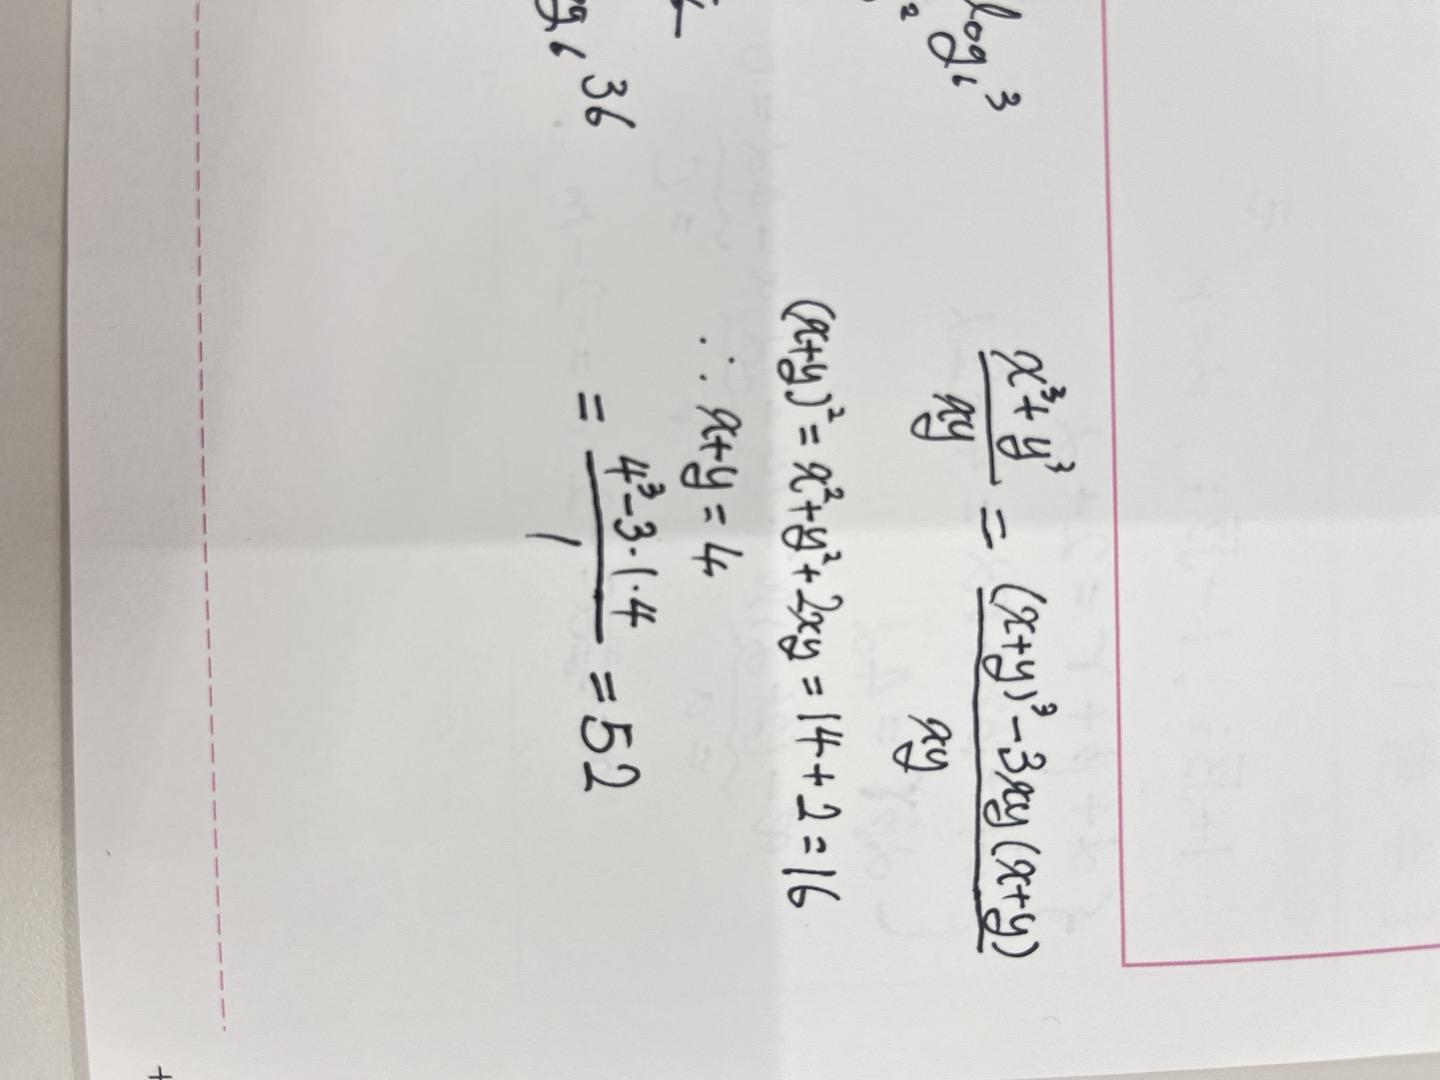 log₆3
36
x³+y³/xy = (x+y)³-3xy(x+y)/xy
(x+y)² = x²+y²+2xy = 14+2 = 16
∴ x+y = 4
= 4³-3·1·4/1 = 52